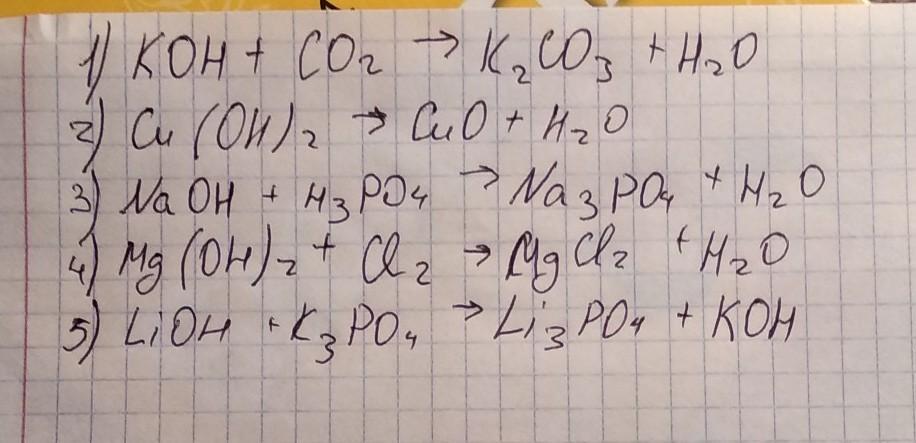 1) KOH + CO₂ → K₂CO₃ + H₂O
2) Cu(OH)₂ → CuO + H₂O
3) NaOH + H₃PO₄ → Na₃PO₄ + H₂O
4) Mg(OH)₂ + Cl₂ → MgCl₂ + H₂O
5) LiOH + K₃PO₄ → Li₃PO₄ + KOH